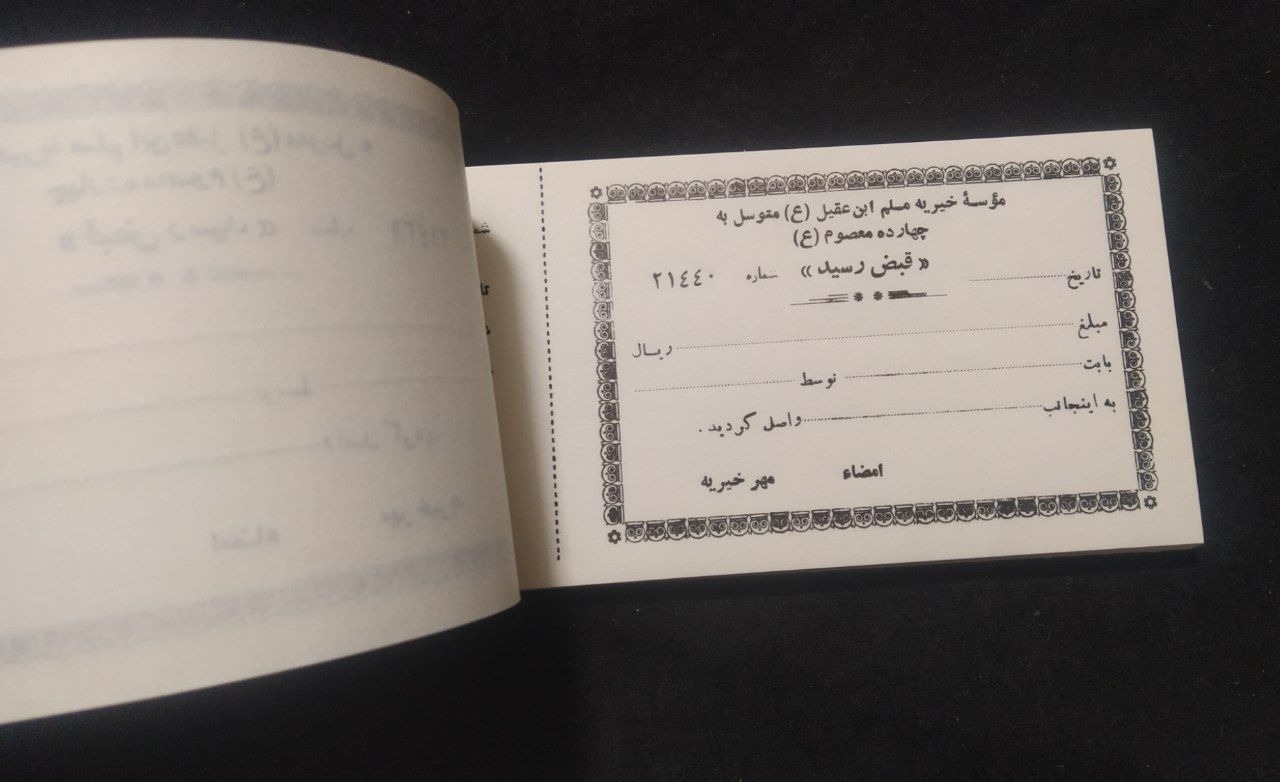 مؤسسهٔ خیریه مسلم ابن عقیل (ع) متوسل به
چهارده معصوم (ع)
تاریخ .......... « قبض رسید » شماره ۲۱٤٤۰
مبلغ .......... ریال
بابت .......... توسط ..........
به اینجانب .......... واصل گردید .
امضاء مهر خیریه